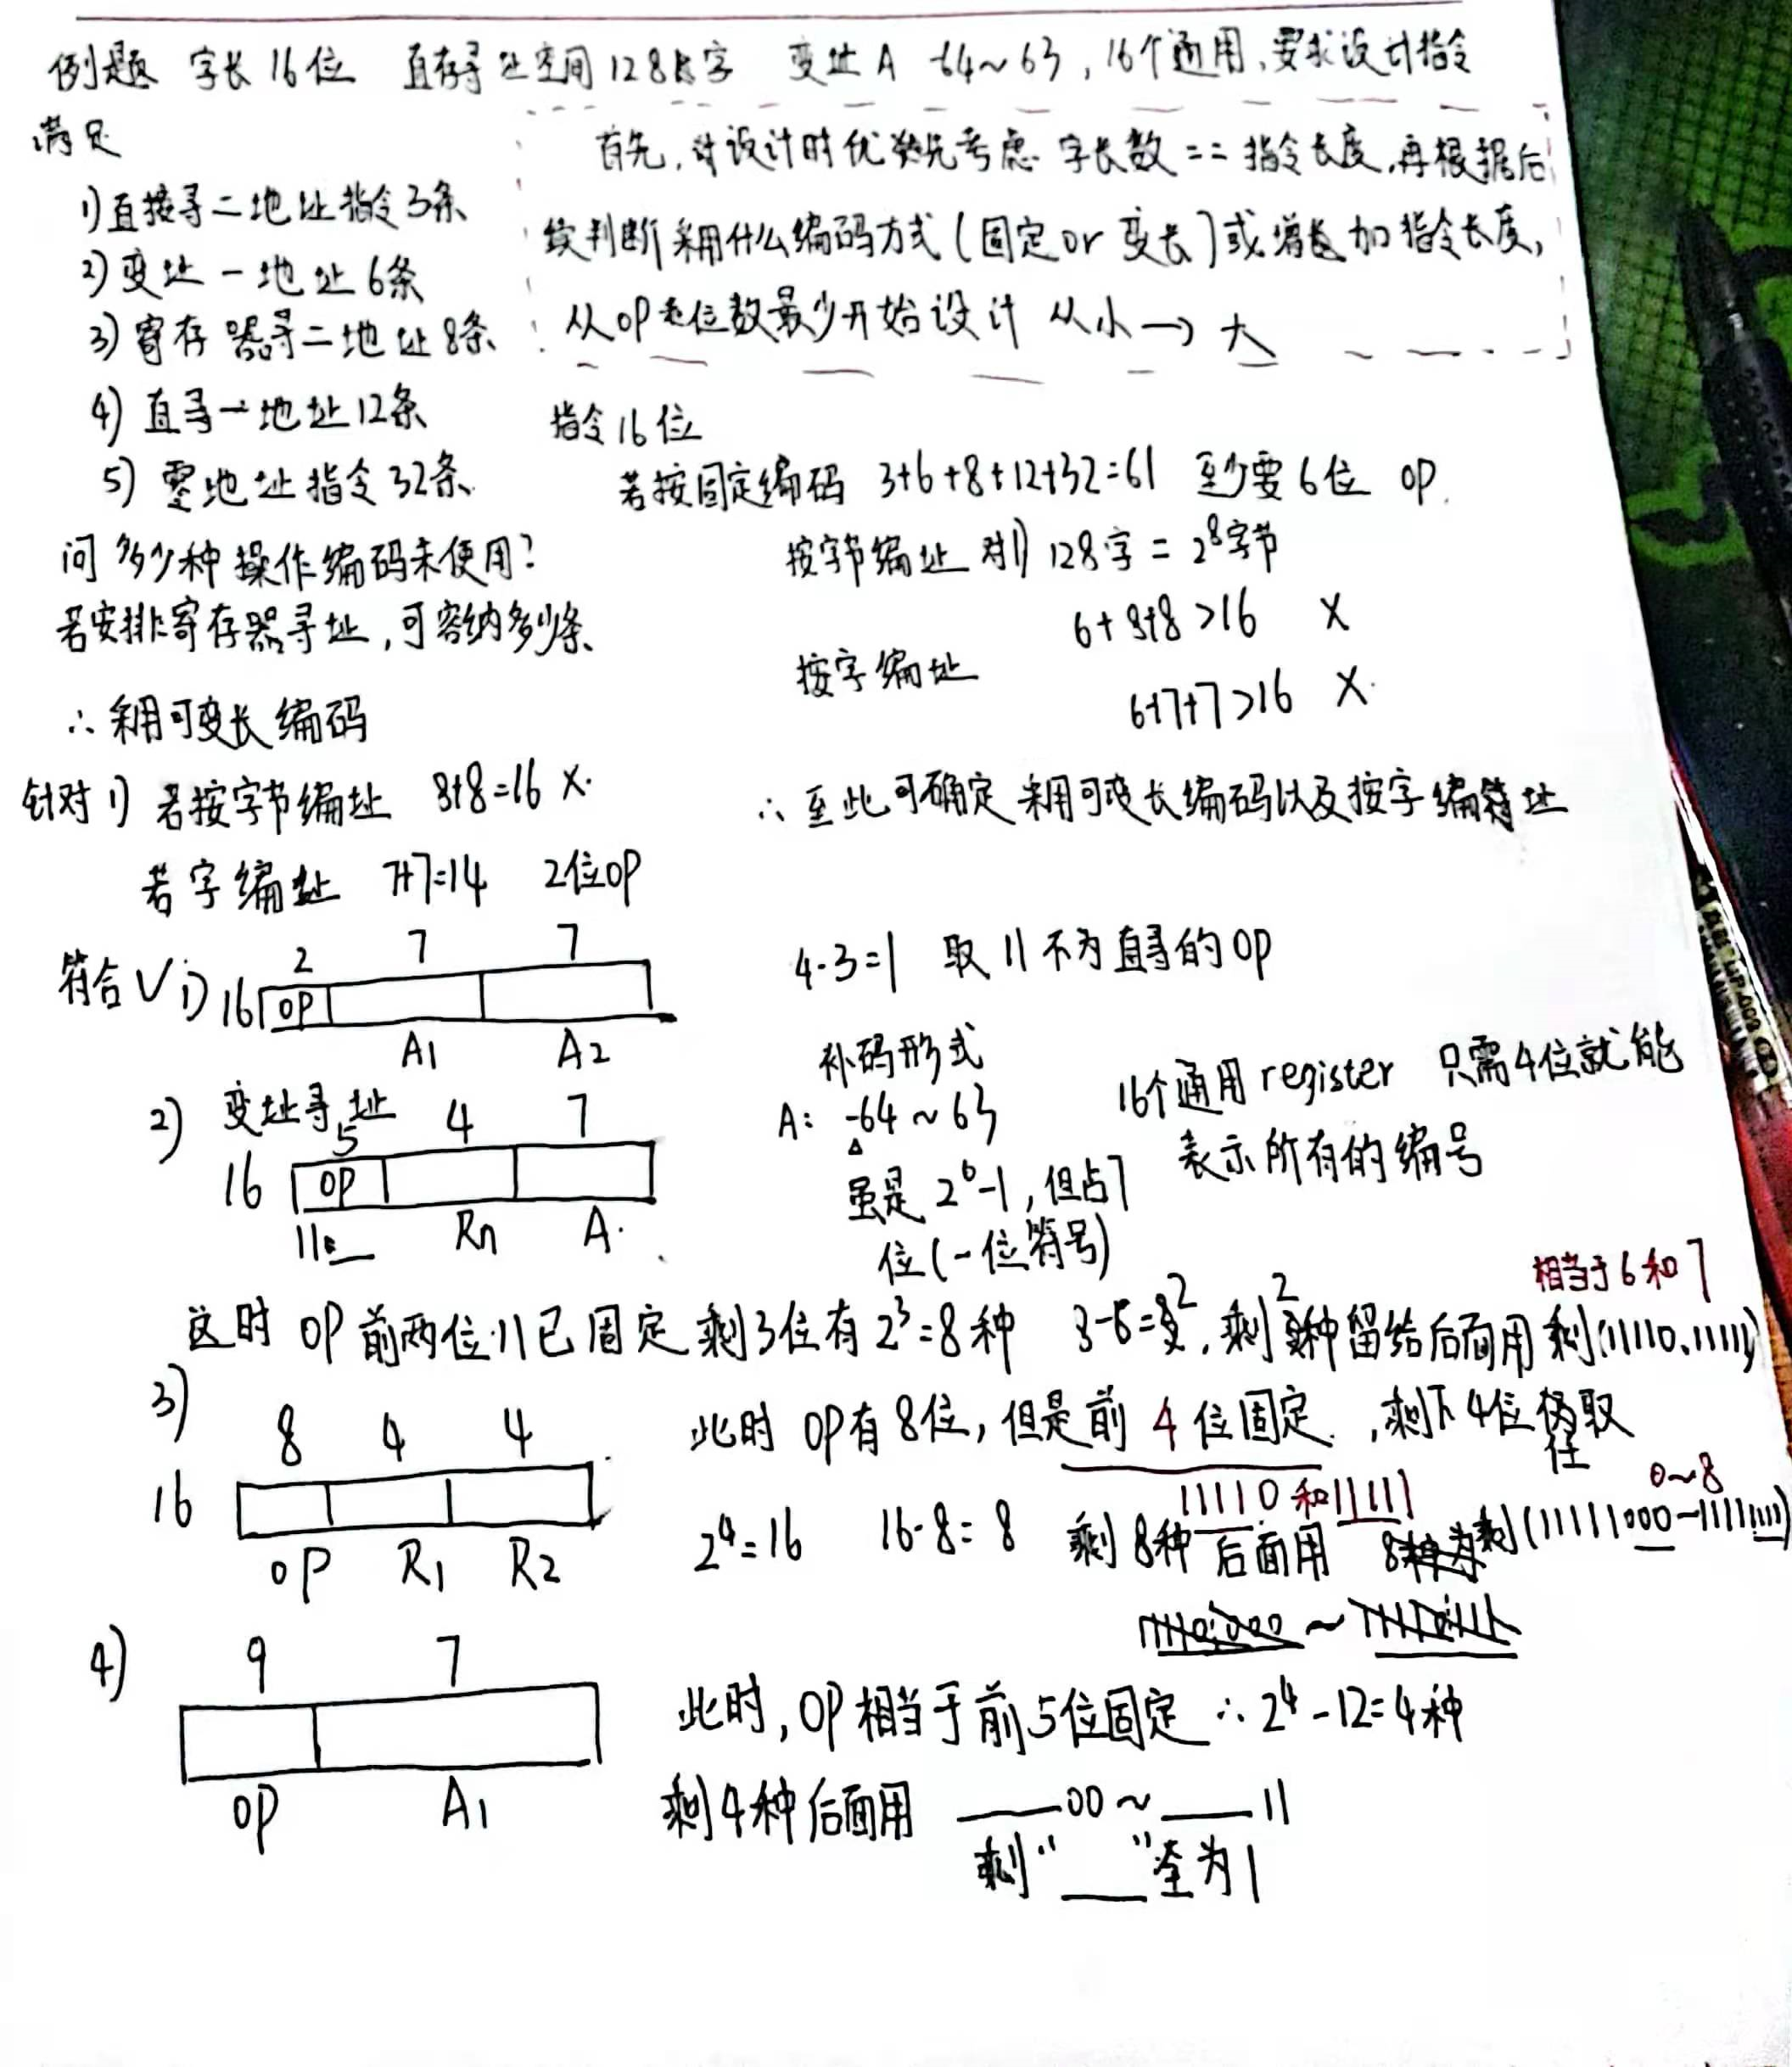 例题 字长16位 直存寻址空间128字 变址A -64~63，16个通用、要求设计指令
满足
1)直接寻二地址指令3条
2)变址一地址6条
3)寄存器寻二地址8条
4)直寻一地址12条
5)零地址指令32条
问多少种操作编码未使用？
若安排寄存器寻址，可容纳多少条
首先，设计时优先考虑 字长数 == 指令长度，再根据后
续判断采用什么编码方式(固定or变长)或增加指令长度，
从OP位数最少开始设计 从小→大
指令16位
若按固定编码 3+6+8+12+32=61 至少要6位OP.
按字节编址 对1) 128字=2⁸字节
6+8+8>16 X
按字编址
6+7+7>16 X.
∴采用可变长编码
针对1) 若按字节编址 8+8=16 X.
∴至此可确定采用可变长编码以及按字编址
若字编址 7+7=14 2位OP
符合√ 1) 16 2 7 7
OP
A1 A2
4-3=1 取11不为直寻的OP
2) 变址寻址
5 4 7
16 OP
11 Rn A.
补码形式
A: -64~63
虽是2⁶-1，但占7
位(一位符号)
16个通用register 只需4位就能
表示所有的编号
相当于6和7
这时OP前两位11已固定剩3位有2³=8种 8-6=2，剩2种留给后面用剩(11110.11111)
3) 8 4 4
16
OP R1 R2
此时OP有8位，但是前4位固定，剩下4位任取
11110和11111
0~8
2⁴=16 16-8=8 剩8种后面用 剩(11111000-11111111)
4) 9 7
OP A1
此时，OP相当于前5位固定 ∴2⁴-12=4种
剩4种后面用 ___00~___11
剩"___"全为1